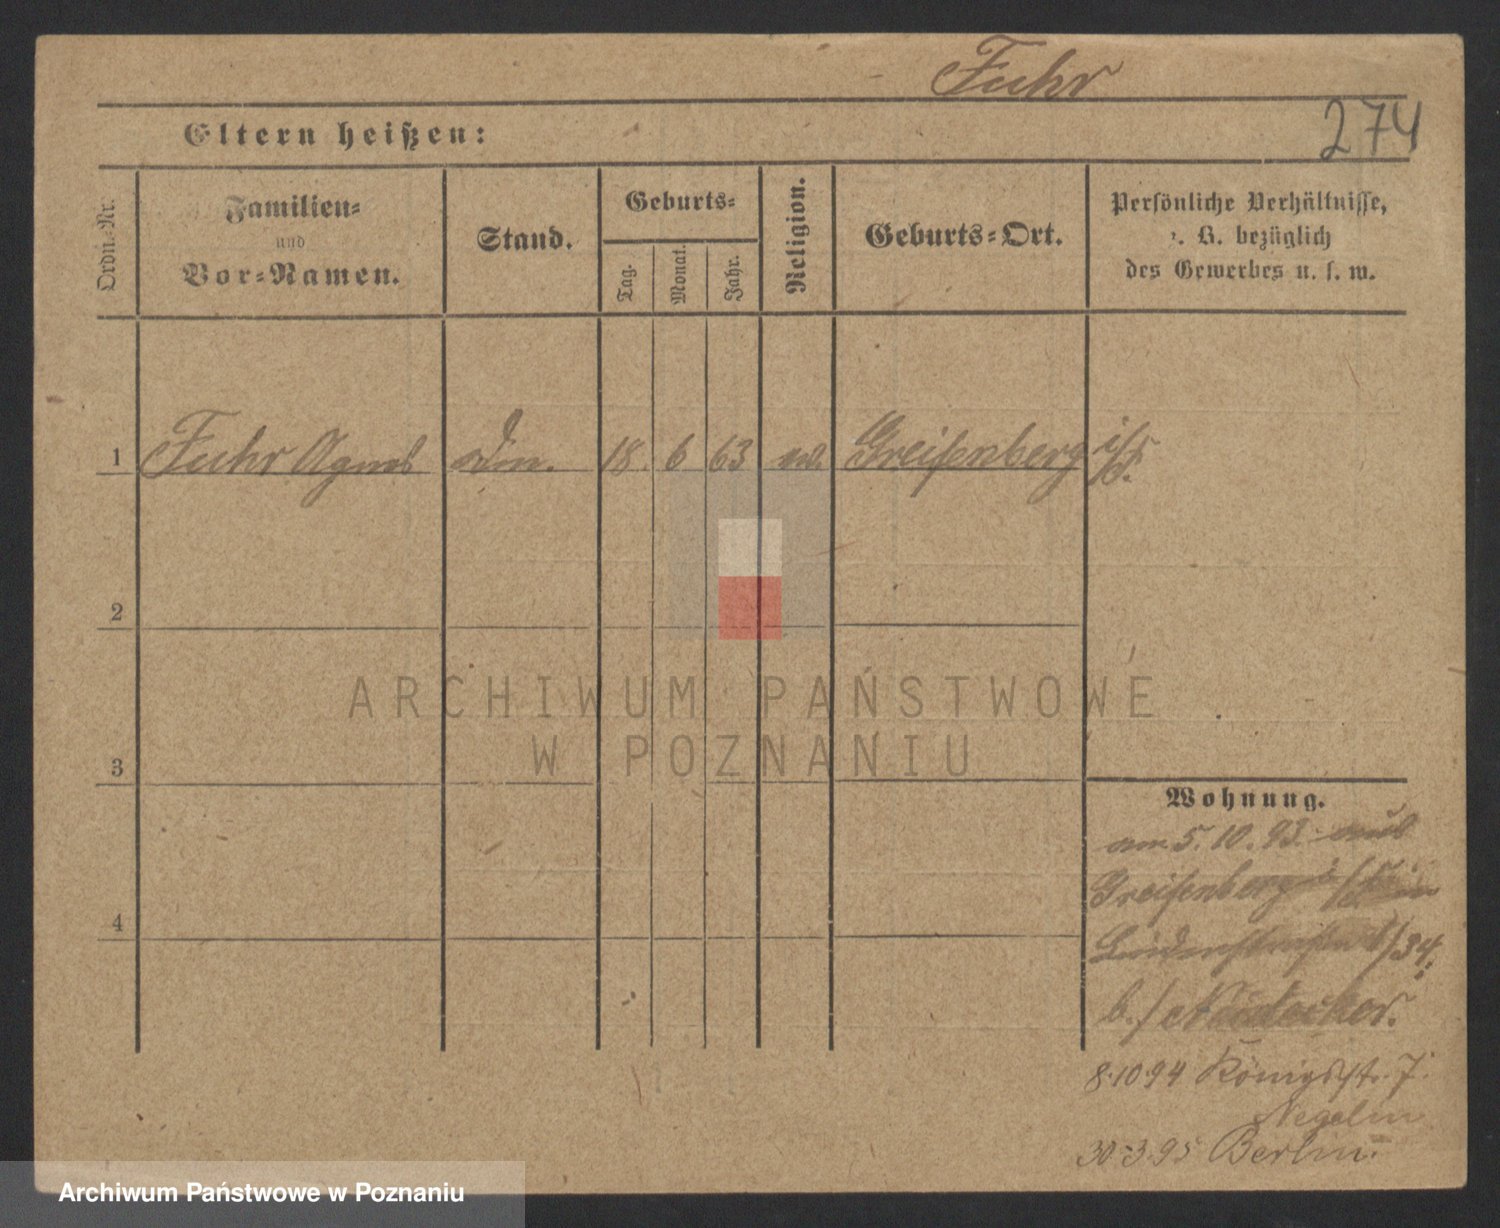 Fuhr
274
Eltern heißen:
Ordn.-Nr.
Familien-
und
Vor-Namen.
Stand.
Geburts-
Tag.
Monat.
Jahr.
Religion.
Geburts-Ort.
Persönliche Verhältnisse,
z. B. bezüglich
des Gewerbes u. s. w.
1 Fuhr Agnes 18 6 63 ev. Greifenberg i/P.
2
ARCHIWUM PAŃSTWOWE
W POZNANIU
3
Wohnung.
am 5.10.93. aus
Greifenberg i/P. in
34.
4
b./
8.10 94 Königsstr. 7.
Negelin
30.3.95 Berlin.
Archiwum Państwowe w Poznaniu